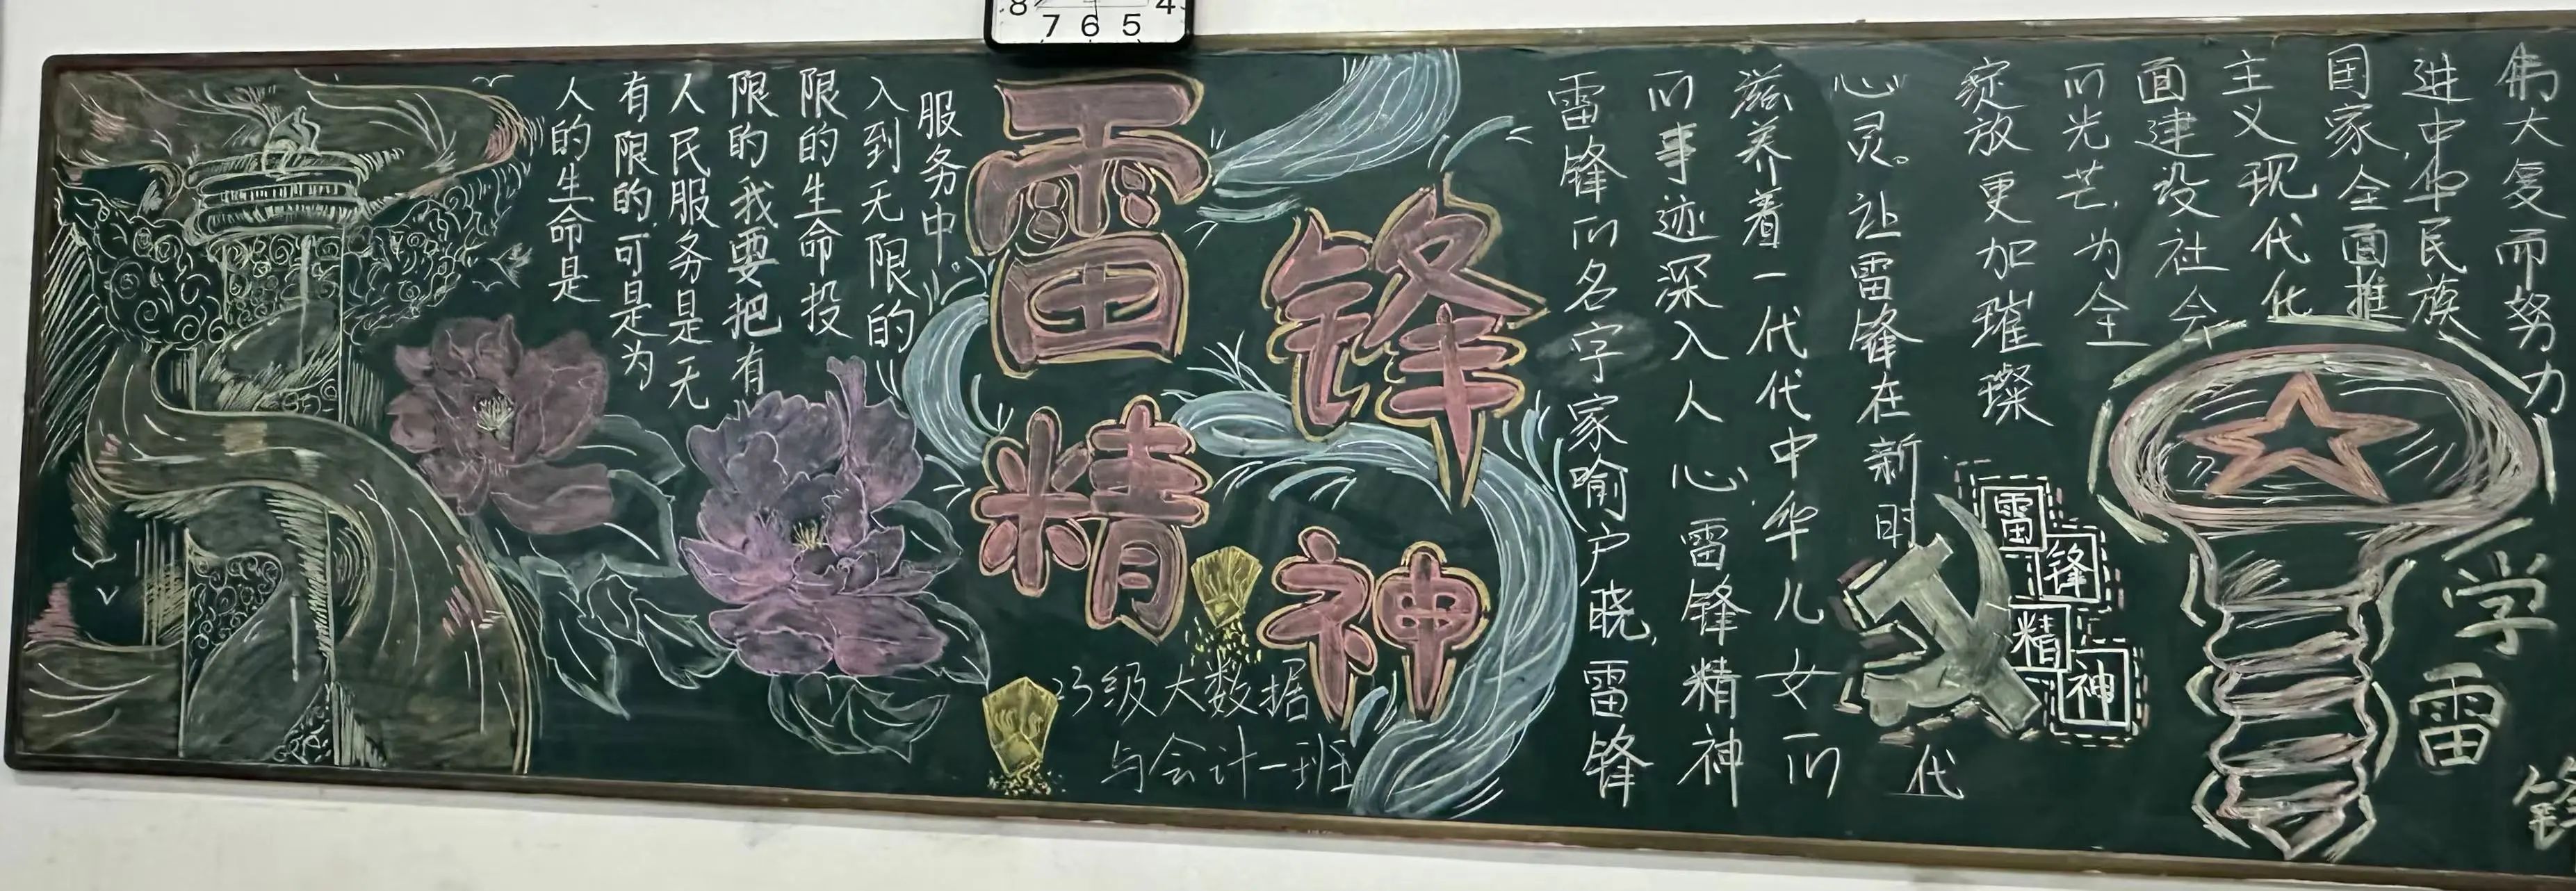 8 7 6 5 4
人的生命是
有限的可是为
人民服务是无
限的我要把有
限的生命投
入到无限的
服务中。
雷锋
精神
23级大数据
与会计一班
雷锋的名字家喻户晓,雷锋
的事迹深入人心,雷锋精神
滋养着一代代中华儿女的
心灵。让雷锋在新时代
绽放更加璀璨
的光芒,为全
面建设社会
主义现代化
国家全面推
进中华民族
伟大复而努力
雷锋精神
学雷锋